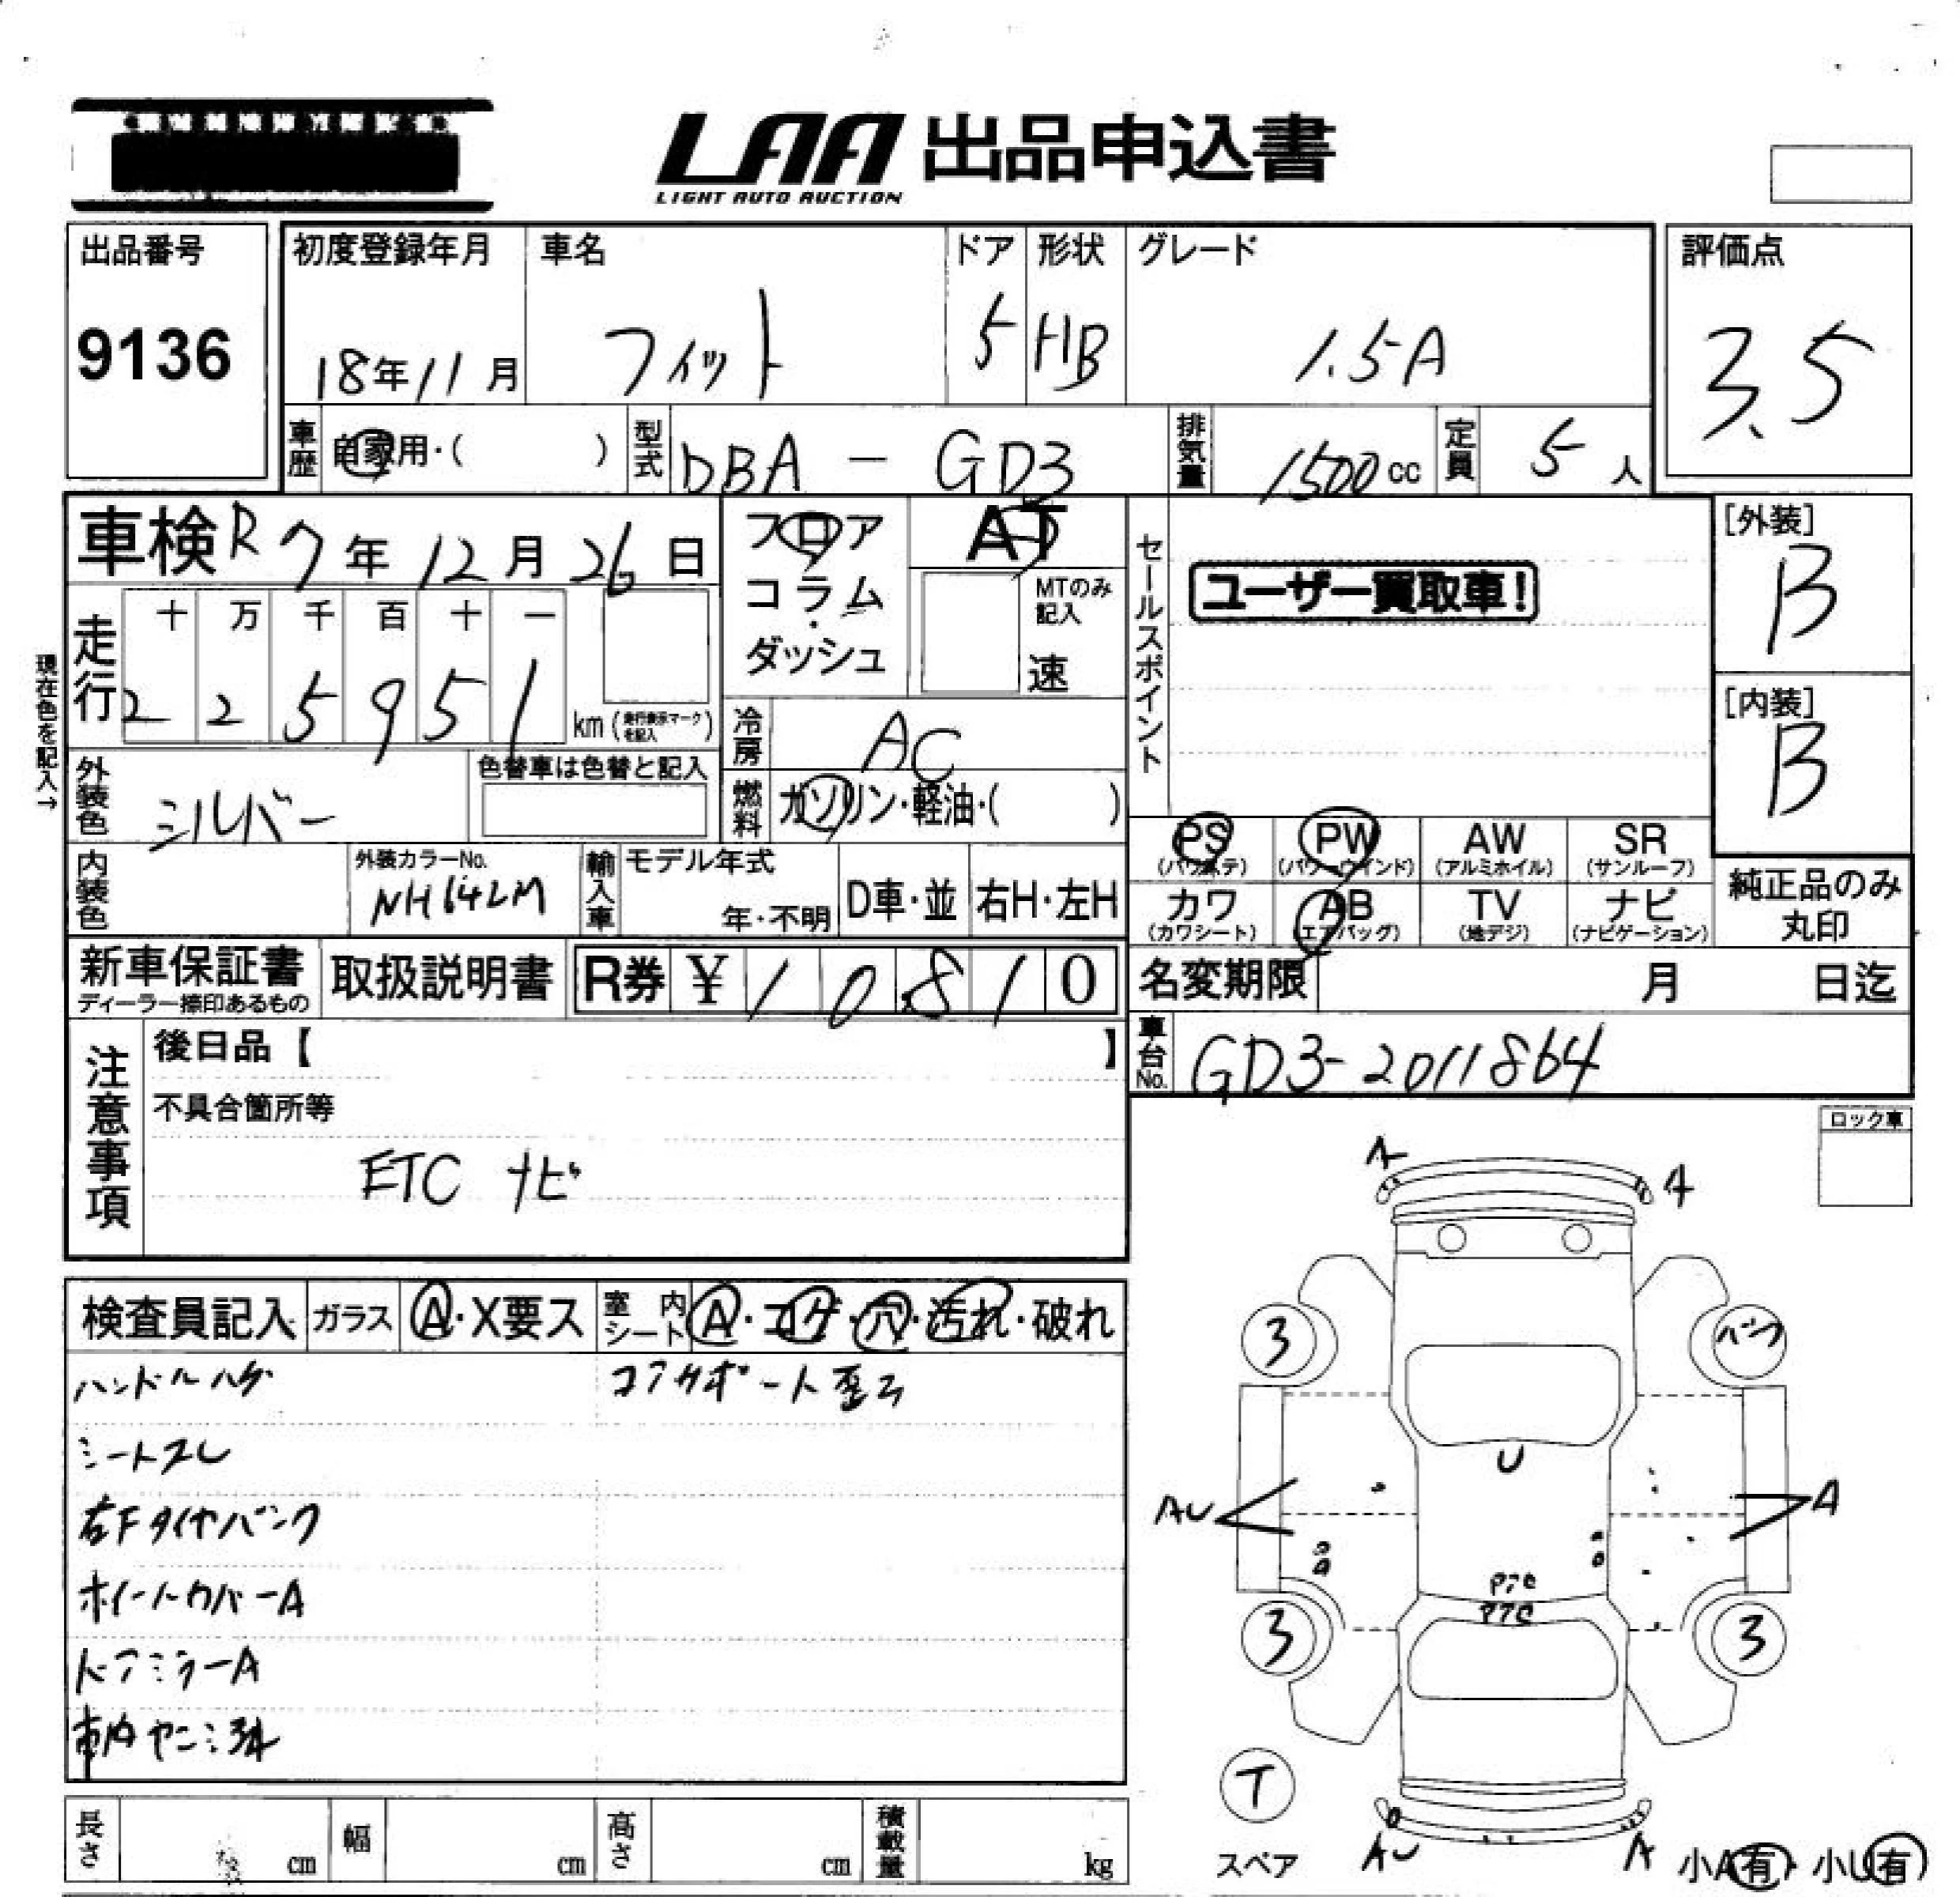 LAA 出品申込書
LIGHT AUTO AUCTION
出品番号
9136
初度登録年月
18年11月
車名
フィット
ドア
5
形状
HB
グレード
1.5A
評価点
3.5
車歴
自家用・( )
型式
DBA - GD3
排気量
1500cc
定員
5人
車検 R7年12月26日
フロア
コラム
ダッシュ
AT
MTのみ
記入
速
走行
十 万 千 百 十 一
2 2 5 9 5 1
km (走行表示マークを記入)
現在色を記入→
外装色
シルバー
色替車は色替と記入
冷房
AC
燃料
ガソリン・軽油・( )
内装色
外装カラーNo.
NH642M
輸入車
モデル年式
年・不明
D車・並
右H・左H
セールスポイント
ユーザー買取車!
[外装]
B
[内装]
B
PS
(パワステ)
PW
(パワーウインド)
AW
(アルミホイル)
SR
(サンルーフ)
カワ
(カワシート)
AB
(エアバッグ)
TV
(地デジ)
ナビ
(ナビゲーション)
純正品のみ
丸印
新車保証書
ディーラー捺印あるもの
取扱説明書
R券 ¥10,810
名変期限 月 日迄
車台No.
GD3-2011864
注意事項
後日品【 】
不具合箇所等
ETC ナビ
ロック車
検査員記入
ガラス
A・X要ス
室内シート
A・コゲ・穴・汚れ・破れ
ハンドルハゲ
コアサポート歪ミ
シートスレ
右Fタイヤパンク
ホイールカバーA
ドアミラーA
車内ヤニ
A
A
3
パンク
U
AU
A
P7C
P7C
3
3
T
スペア
AU
A
小A有・小U有
長さ cm
幅 cm
高さ cm
積載量 kg